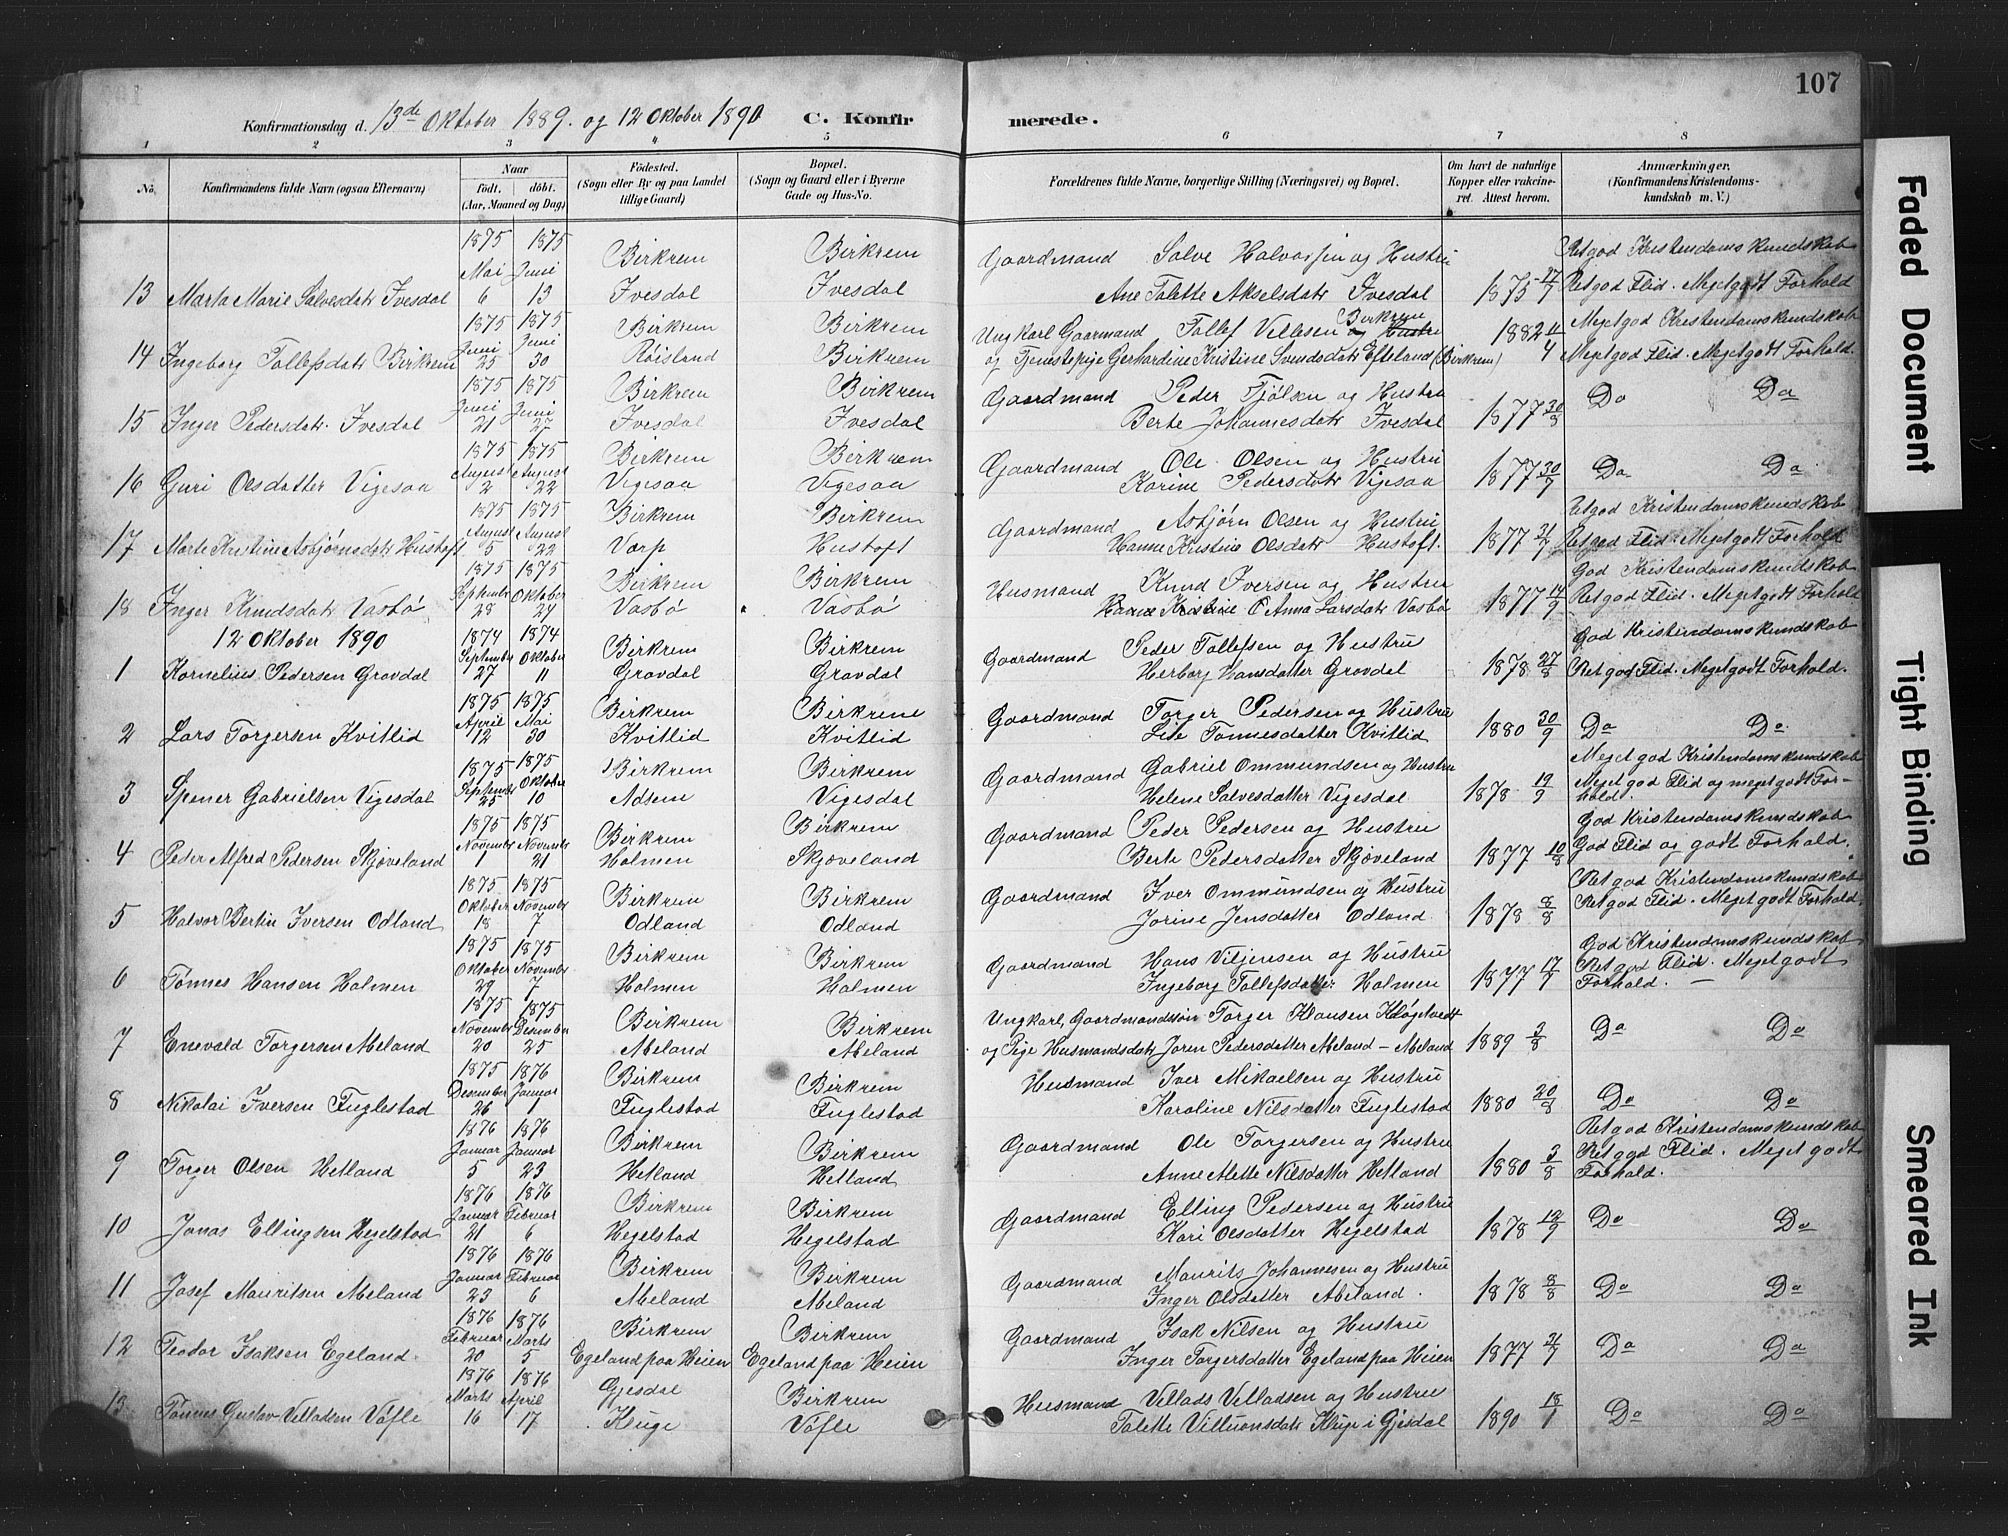 107
Konfirmationsdag d. 13de Oktober 1889. og 12 Oktober 1890 C. Konfirmerede.
1 2 3 4 5 6 7 8
No. Konfirmandens fulde Navn (ogsaa Efternavn)
Naar
født. døbt.
(Aar, Maaned og Dag)
Fødested.
(Sogn eller By og paa Landet
tillige Gaard)
Bopæl.
(Sogn og Gaard eller i Byerne
Gade og Hus-No.
Forældrenes fulde Navne, borgerlige Stilling (Næringsvei) og Bopæl.
Om havt de naturlige
Kopper eller vakcine-
ret. Attest herom.
Anmærkninger,
(Konfirmandens Kristendoms-
kundskab m. V.)
1875 1875 Birkrem Birkrem Gaardmand Salve Halvorsen og Hustru Ret god Kristendomskundskab
13 Marta Marie Salvesdatr Ivesdal Mai 6 Juni 13 Ivesdal Ivesdal Ane Talette Akselsdatr Ivesdal 1875 27/7 Ret god Flid. Meget godt Forhold
1875 1875 Birkrem Birkrem Ungkarl Gaarmand Tollef Villesen Birkrem 1882 11/4 Meget god Kristendomskundskab
14 Ingeborg Tollefsdatr Birkrem Juni 25 Juni 30 Røisland Birkrem og Tjenestepige Gerhardine Kristine Svendsdatr Efteland (Birkrem) Meget god Flid. Meget godt Forhold.
1875 1875 Birkrem Birkrem Gaardmand Peder Tjølsen og Hustru Do Do
15 Inger Pedersdatr. Ivesdal Juni 21 Juni 27 Ivesdal Ivesdal Berte Johannesdatr Ivesdal 1877 30/8
1875 1875 Birkrem Birkrem Gaardmand Ole Olsen og Hustru
16 Guri Olsdatter Vigesaa August 2 August 22 Vigesaa Vigesaa Karine Pedersdatr Vigesaa 1877 30/7 Do Do
1875 1875 Birkrem Birkrem Gaardmand Asbjørn Olsen og Hustru Ret god Kristendomskundskab
17 Marte Kristine Asbjørnsdatr Hustoft August 5 August 22 Varp Hustoft Hanne Kristine Olsdatr Hustoft. 1877 31/7 Ret god Flid. Meget godt Forhold
1875 1875 Birkrem Birkrem Husmand Knud Iversen og Hustru God Kristendomskundskab
18 Inger Knudsdatr Vasbø September 28 Oktober 24 Vasbø Vasbø Anna Larsdatr Vasbø 1877 14/9 Ret god Flid. Meget godt Forhold
12 Oktober 1890
1874 1874 Birkrem Birkrem Gaardmand Peder Tollefsen og Hustru God Kristendomskundskab
1 Kornelius Pedersen Gravdal September 27 Oktober 11 Gravdal Gravdal Herborg Hansdatter Gravdal 1878 27/8 Ret god Flid. Meget godt Forhold.
1875 1875 Birkrem Birkrem Gaardmand Torger Pedersen og Hustru
2 Lars Torgersen Kvitlid April 12 Mai 30 Kvitlid Kvitlid Lise Tønnesdatter Kvitlid 1880 30/9 Do Do
1875 1875 Birkrem Birkrem Gaardmand Gabriel Ommundsen og Hustru Meget god Kristendomskundskab
3 Spener Gabrielsen Vigesdal September 25 Oktober 10 Adsem Vigesdal Helene Salvesdatter Vigesdal 1878 19/9 Meget god Flid og meget godt Forhold.
1875 1875 Birkrem Birkrem Gaardmand Peder Pedersen og Hustru God Kristendomskundskab
4 Peder Alfred Pedersen Skjæveland Novembr 1 Novembr 21 Holmen Skjæveland Berte Pedersdatter Skjæveland 1877 10/8 God Flid og godt Forhold.
1875 1875 Birkrem Birkrem Gaardmand Iver Ommundsen og Hustru Ret god Kristendomskundskab
5 Halvor Bertin Iversen Odland Oktober 18 Novembr 7 Odland Odland Jorine Jensdatter Odland. 1878 8/8 Ret god Flid. Meget godt Forhold.
1875 1875 Birkrem Birkrem Gaardmand Hans Vitjensen og Hustru God Kristendomskundskab
6 Tønnes Hansen Holmen Oktober 29 Novembr 7 Holmen Holmen Ingeborg Tollefsdatter Holmen 1877 17/7 Ret god Flid. Meget godt Forhold.
1875 1875 Birkrem Birkrem Ungkarl, Gaardmandssøn Torger Klausen Kløgetvedt
7 Enevald Torgersen Meland Novembr 20 Desember 25 Meland Meland og Pige Husmandsdatr Joren Pedersdatter Meland - Meland 1889 3/8 Do Do
1875 1876 Birkrem Birkrem Husmand Iver Mikaelsen og Hustru
8 Nikolai Iversen Fuglestad Desember 26 Januar 1 Fuglestad Fuglestad Karoline Nilsdatter Fuglestad 1880 20/8 Do Do
1876 1876 Birkrem Birkrem Gaardmand Ole Torgersen og Hustru Ret god Kristendomskundskab
9 Torger Olsen Hetland Januar 5 Januar 23 Hetland Hetland Anne Malette Nilsdatter Hetland 1880 3/8 Ret god Flid. Meget godt Forhold.
1876 1876 Birkrem Birkrem Gaardmand Elling Pedersen og Hustru
10 Jonas Ellingsen Hegelstad Januar 21 Februar 6 Hegelstad Hegelstad Kari Olsdatter Hegelstad 1878 19/9 Do Do
1876 1876 Birkrem Birkrem Gaardmand Maurits Johannesen og Hustru
11 Josef Mauritsen Meland Januar 23 Februar 6 Meland Meland Inger Olsdatter Meland. 1878 8/8 Do Do
1876 1876 Birkrem Birkrem Gaardmand Isak Nilsen og Hustru
12 Teodor Isaksen Egeland. Februar 20 Marts 5 Egeland paa Heien Egeland paa Heien Inger Torgersdatter Egeland paa Heien 1877 21/7 Do Do
1876 1876 Gjesdal Birkrem Husmand Vellads Velladsen og Hustru
13 Tønnes Gustav Velladsen Vøfle Marts 16 April 17 Kluge Vøfle Talette Villumsdatr Kluge i Gjesdal 1890 18/1 Do Do
Faded Document
Tight Binding
Smeared Ink